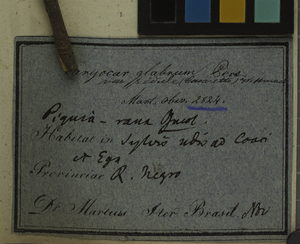 Caryocar glabrum Pers
Mart. Obs. 2824.
Piquia-rana Incol.
Habitat in Sylvis udis ad Coari
et Ega
Provinciae R. Negro
Dr Martius Iter Brasil Nov